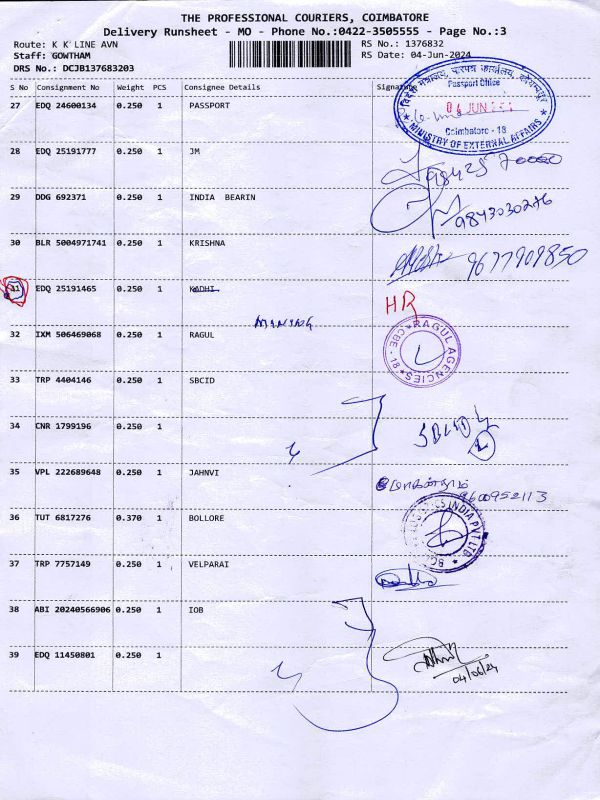 THE PROFESSIONAL COURIERS, COIMBATORE
Delivery Runsheet - MO - Phone No.:0422-3505555 - Page No.:3
Route: K K LINE AVN
Staff: GOWTHAM
DRS No.: DCJB137683203
RS No.: 1376832
RS Date: 04-Jun-2024
S No Consignment No Weight PCS Consignee Details Signature
27 EDQ 24600134 0.250 1 PASSPORT
विदेश मंत्रालय, पारपत्र कार्यालय, कोयम्बत्तूर
Passport Office
04 JUN
Coimbatore - 18
MINISTRY OF EXTERNAL AFFAIRS
28 EDQ 25191777 0.250 1 JM
98425 70000
29 DDG 692371 0.250 1 INDIA BEARIN
9843030276
30 BLR 5004971741 0.250 1 KRISHNA
9677909850
31 EDQ 25191465 0.250 1 KADHI
HR
32 IXM 506469068 0.250 1 RAGUL
RAGUL AGENCIES
CBE - 18
33 TRP 4404146 0.250 1 SBCID
34 CNR 1799196 0.250 1
SBCID
2
35 VPL 222689648 0.250 1 JAHNVI
மோகன்ராம்
9600952113
36 TUT 6817276 0.370 1 BOLLORE
LOGISTICS INDIA PVT LTD
37 TRP 7757149 0.250 1 VELPARAI
38 ABI 20240566906 0.250 1 IOB
39 EDQ 11450801 0.250 1
04/06/24